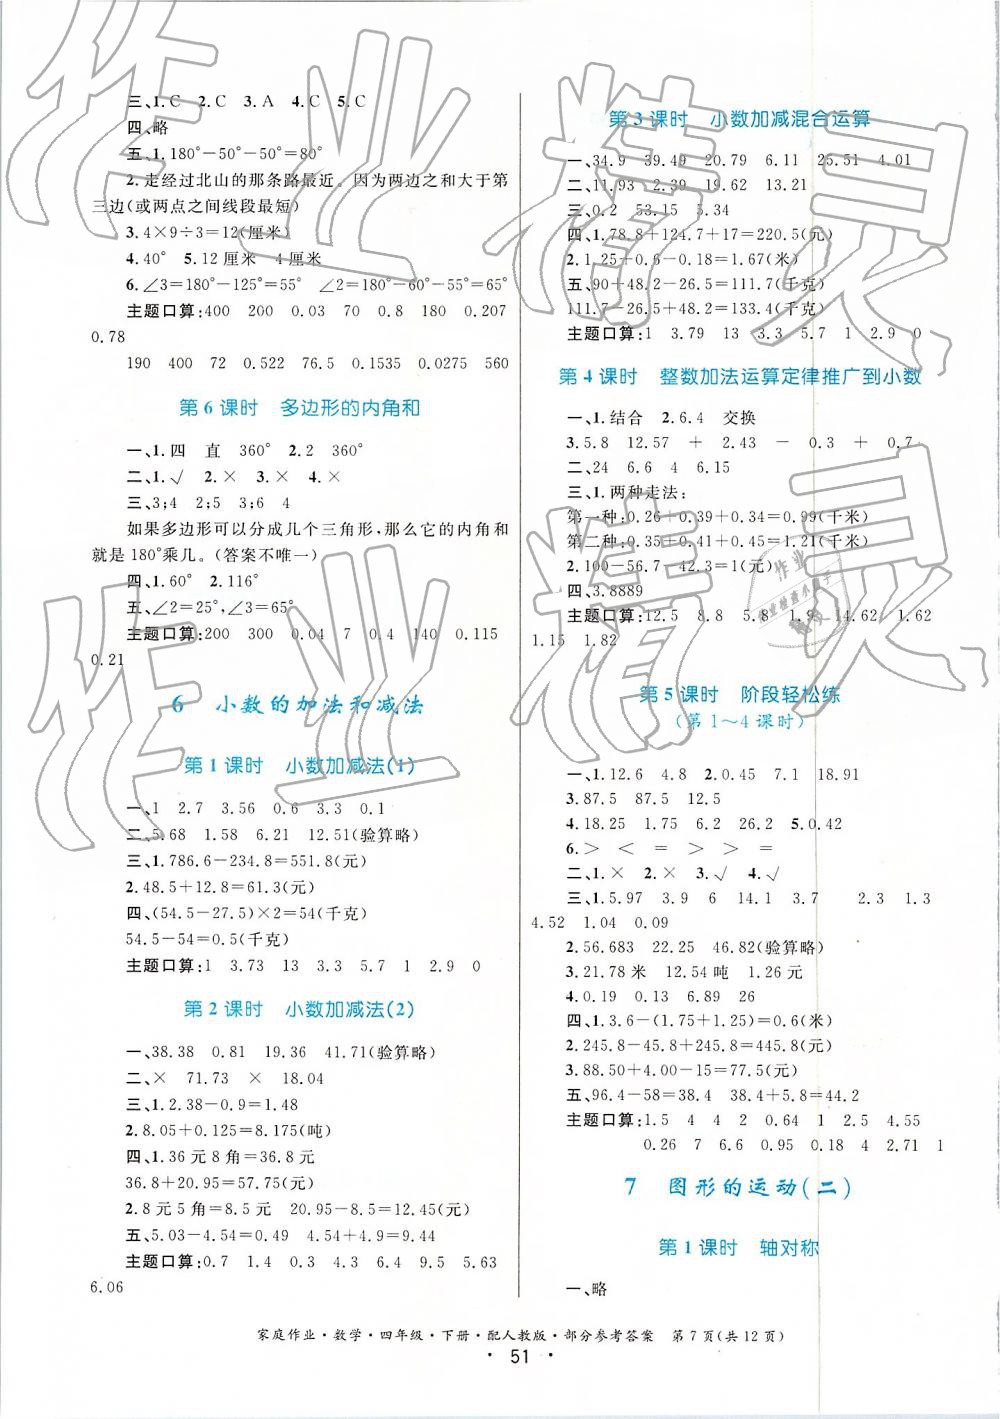 三、1.C 2.C 3.A 4.C 5.C
四、略
五、1.180°－50°－50°＝80°
2.走经过北山的那条路最近。因为两边之和大于第
三边(或两点之间线段最短)
3.4×9÷3＝12(厘米)
4.40° 5.12厘米 4厘米
6.∠3＝180°－125°＝55° ∠2＝180°－60°－55°＝65°
主题口算:400 200 0.03 70 0.8 180 0.207
0.78
190 400 72 0.522 76.5 0.1535 0.0275 560
第6课时 多边形的内角和
一、1.四 直 360° 2.2 360°
二、1.√ 2.× 3.× 4.×
三、3;4 2;5 3;6 4
如果多边形可以分成几个三角形,那么它的内角和
就是180°乘几。(答案不唯一)
四、1.60° 2.116°
五、∠2＝25°,∠3＝65°
主题口算:200 300 0.04 7 0.4 140 0.115
0.21
6 小数的加法和减法
第1课时 小数加减法(1)
一、1 2.7 3.56 0.6 3.3 0.1
二、5.68 1.58 6.21 12.51(验算略)
三、1.786.6－234.8＝551.8(元)
2.48.5＋12.8＝61.3(元)
四、(54.5－27.5)×2＝54(千克)
54.5－54＝0.5(千克)
主题口算:1 3.73 13 3.3 5.7 1 2.9 0
第2课时 小数加减法(2)
一、38.38 0.81 19.36 41.71(验算略)
二、× 71.73 × 18.04
三、1.2.38－0.9＝1.48
2.8.05＋0.125＝8.175(吨)
四、1.36元8角＝36.8元
36.8＋20.95＝57.75(元)
2.8元5角＝8.5元 20.95－8.5＝12.45(元)
五、5.03－4.54＝0.49 4.54＋4.9＝9.44
主题口算:0.7 1.4 0.3 4 0.15 9.5 5.63
6.06
第3课时 小数加减混合运算
一、34.9 39.49 20.79 6.11 25.51 4.01
二、11.93 2.39 19.16 13.21
三、0.2 53.15 5.34
四、1.78.8＋124.7＋17＝220.5(元)
2.1.25＋0.6－0.18＝1.67(米)
五、90＋48.2－26.5＝111.7(千克)
111.7－26.5＋48.2＝133.4(千克)
主题口算:1 3.79 13 3.3 5.7 1 2.9 0
第4课时 整数加法运算定律推广到小数
一、1.结合 2.6.4 交换
3.5.8 12.57 ＋ 2.43 － 0.3 ＋ 0.7
二、24 6.6 4 6.15
三、1.两种走法:
第一种:0.26＋0.39＋0.34＝0.99(千米)
第二种:0.35＋0.41＋0.45＝1.21(千米)
2.100－56.7－42.3＝1(元)
四、3.8889
主题口算:12.5 8.8 5.8 1.9 14.62 1.62
1.15 1.82
第5课时 阶段轻松练
(第1～4课时)
一、1.12.6 4.8 2.0.45 7.1 18.91
3.87.5 87.5 12.5
4.18.25 1.75 6.2 26.2 5.0.42
6.＞ ＜ ＝ ＞ ＞ ＝
二、1.× 2.× 3.√ 4.√
三、1.5.97 3.9 6 14.1 3.7 2.3 1.3
4.52 1.04 0.09
2.56.683 22.25 46.82(验算略)
3.21.78米 12.54吨 1.26元
4.0.19 0.13 6.89 26
四、1.3.6－(1.75＋1.25)＝0.6(米)
2.245.8－45.8＋245.8＝445.8(元)
3.88.50＋4.00－15＝77.5(元)
五、96.4－58＝38.4 38.4＋5.8＝44.2
主题口算:1.5 4 4 2 0.64 1 2.5 4.55
0.26 7 6.6 0.95 0.18 4 2.71 1
7 图形的运动(二)
第1课时 轴对称
一、略
家庭作业·数学·四年级·下册·配人教版·部分参考答案 第7页(共12页)
· 51 ·
作业精灵
作业精灵